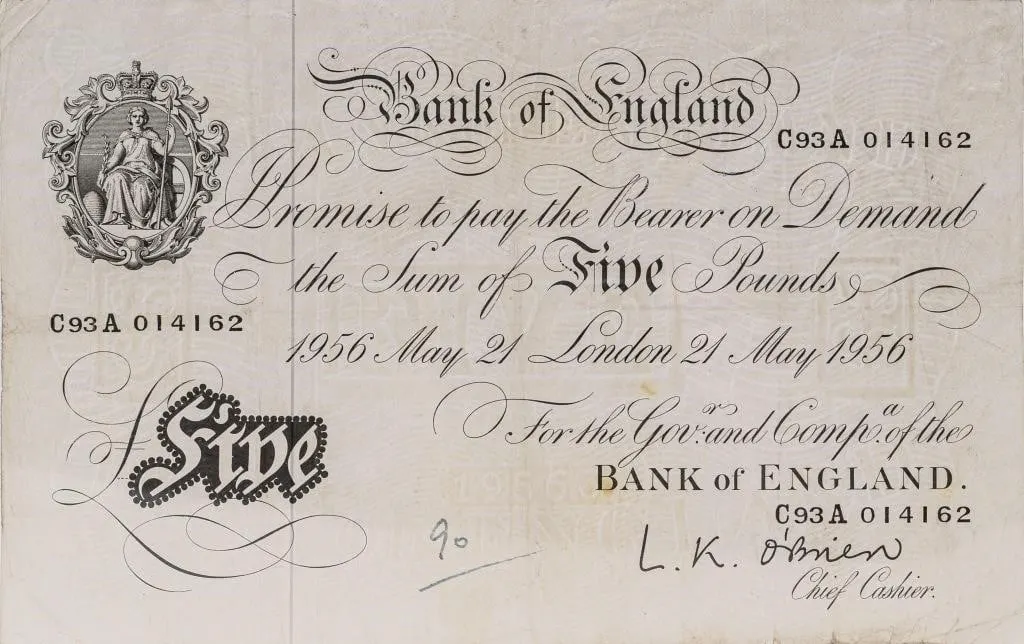 Bank of England
C93A 014162
I Promise to pay the Bearer on Demand
the Sum of Five Pounds
C93A 014162
1956 May 21 London 21 May 1956
For the Govr. and Compa. of the
BANK of ENGLAND.
£Five
C93A 014162
90
L. K. O'Brien
Chief Cashier.